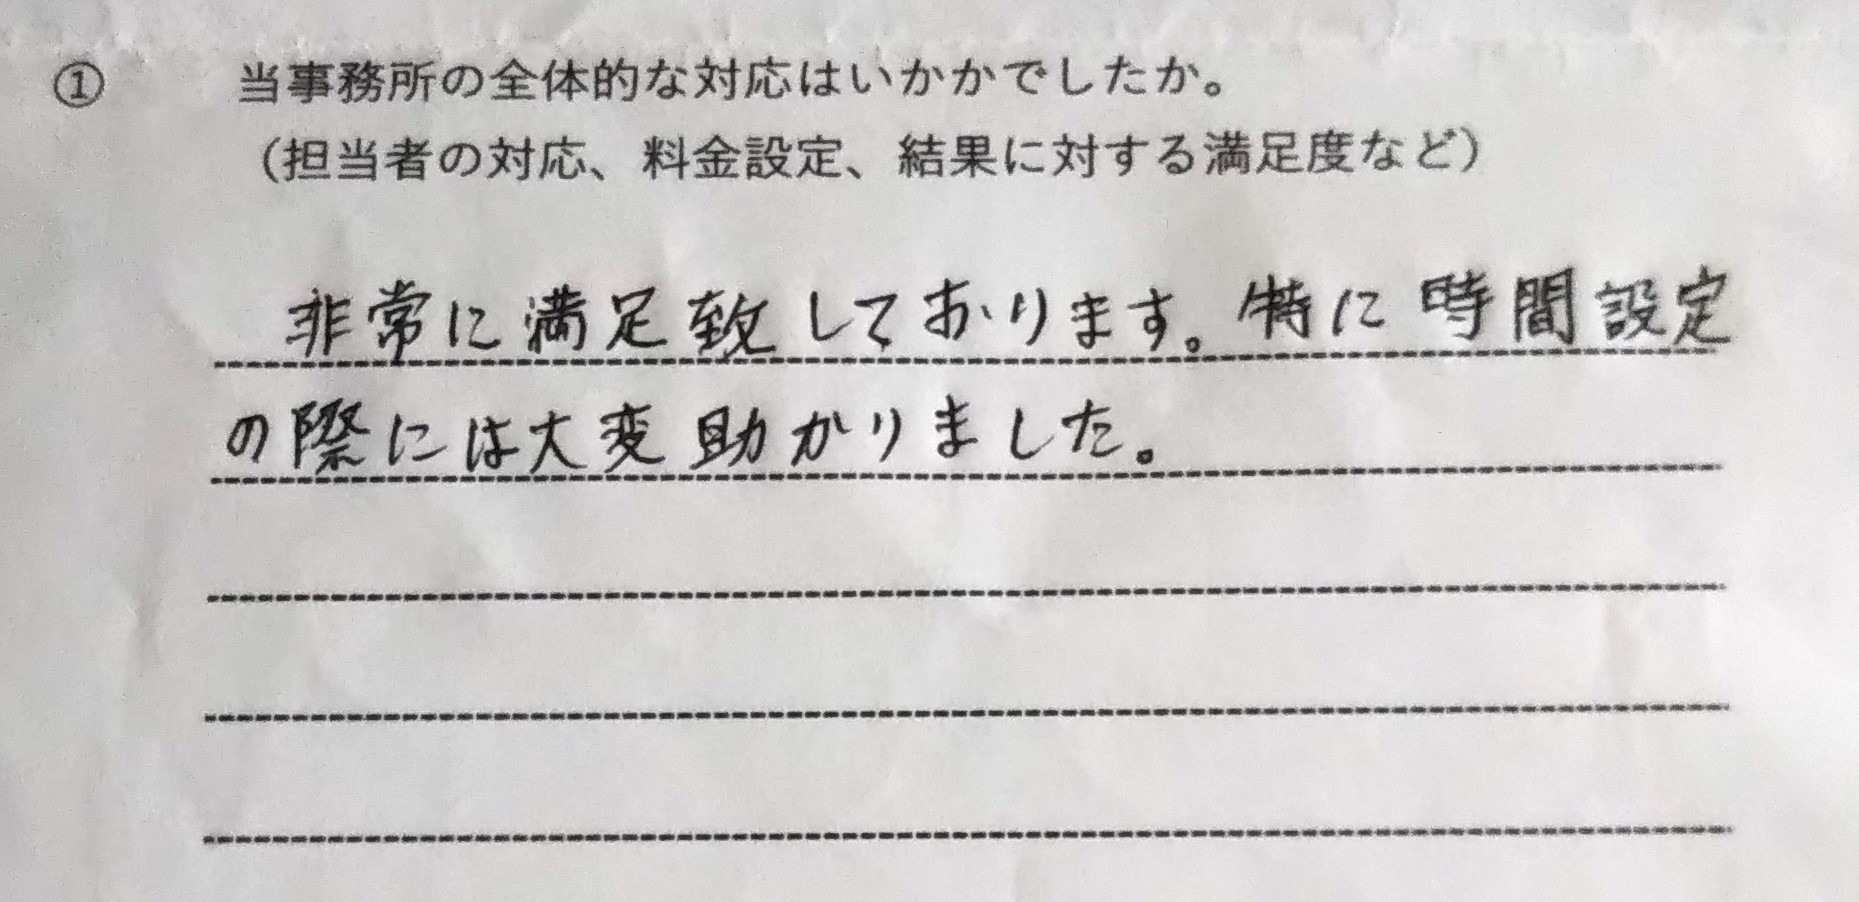 ① 当事務所の全体的な対応はいかかでしたか。
（担当者の対応、料金設定、結果に対する満足度など）
非常に満足致しております。特に時間設定
の際には大変助かりました。